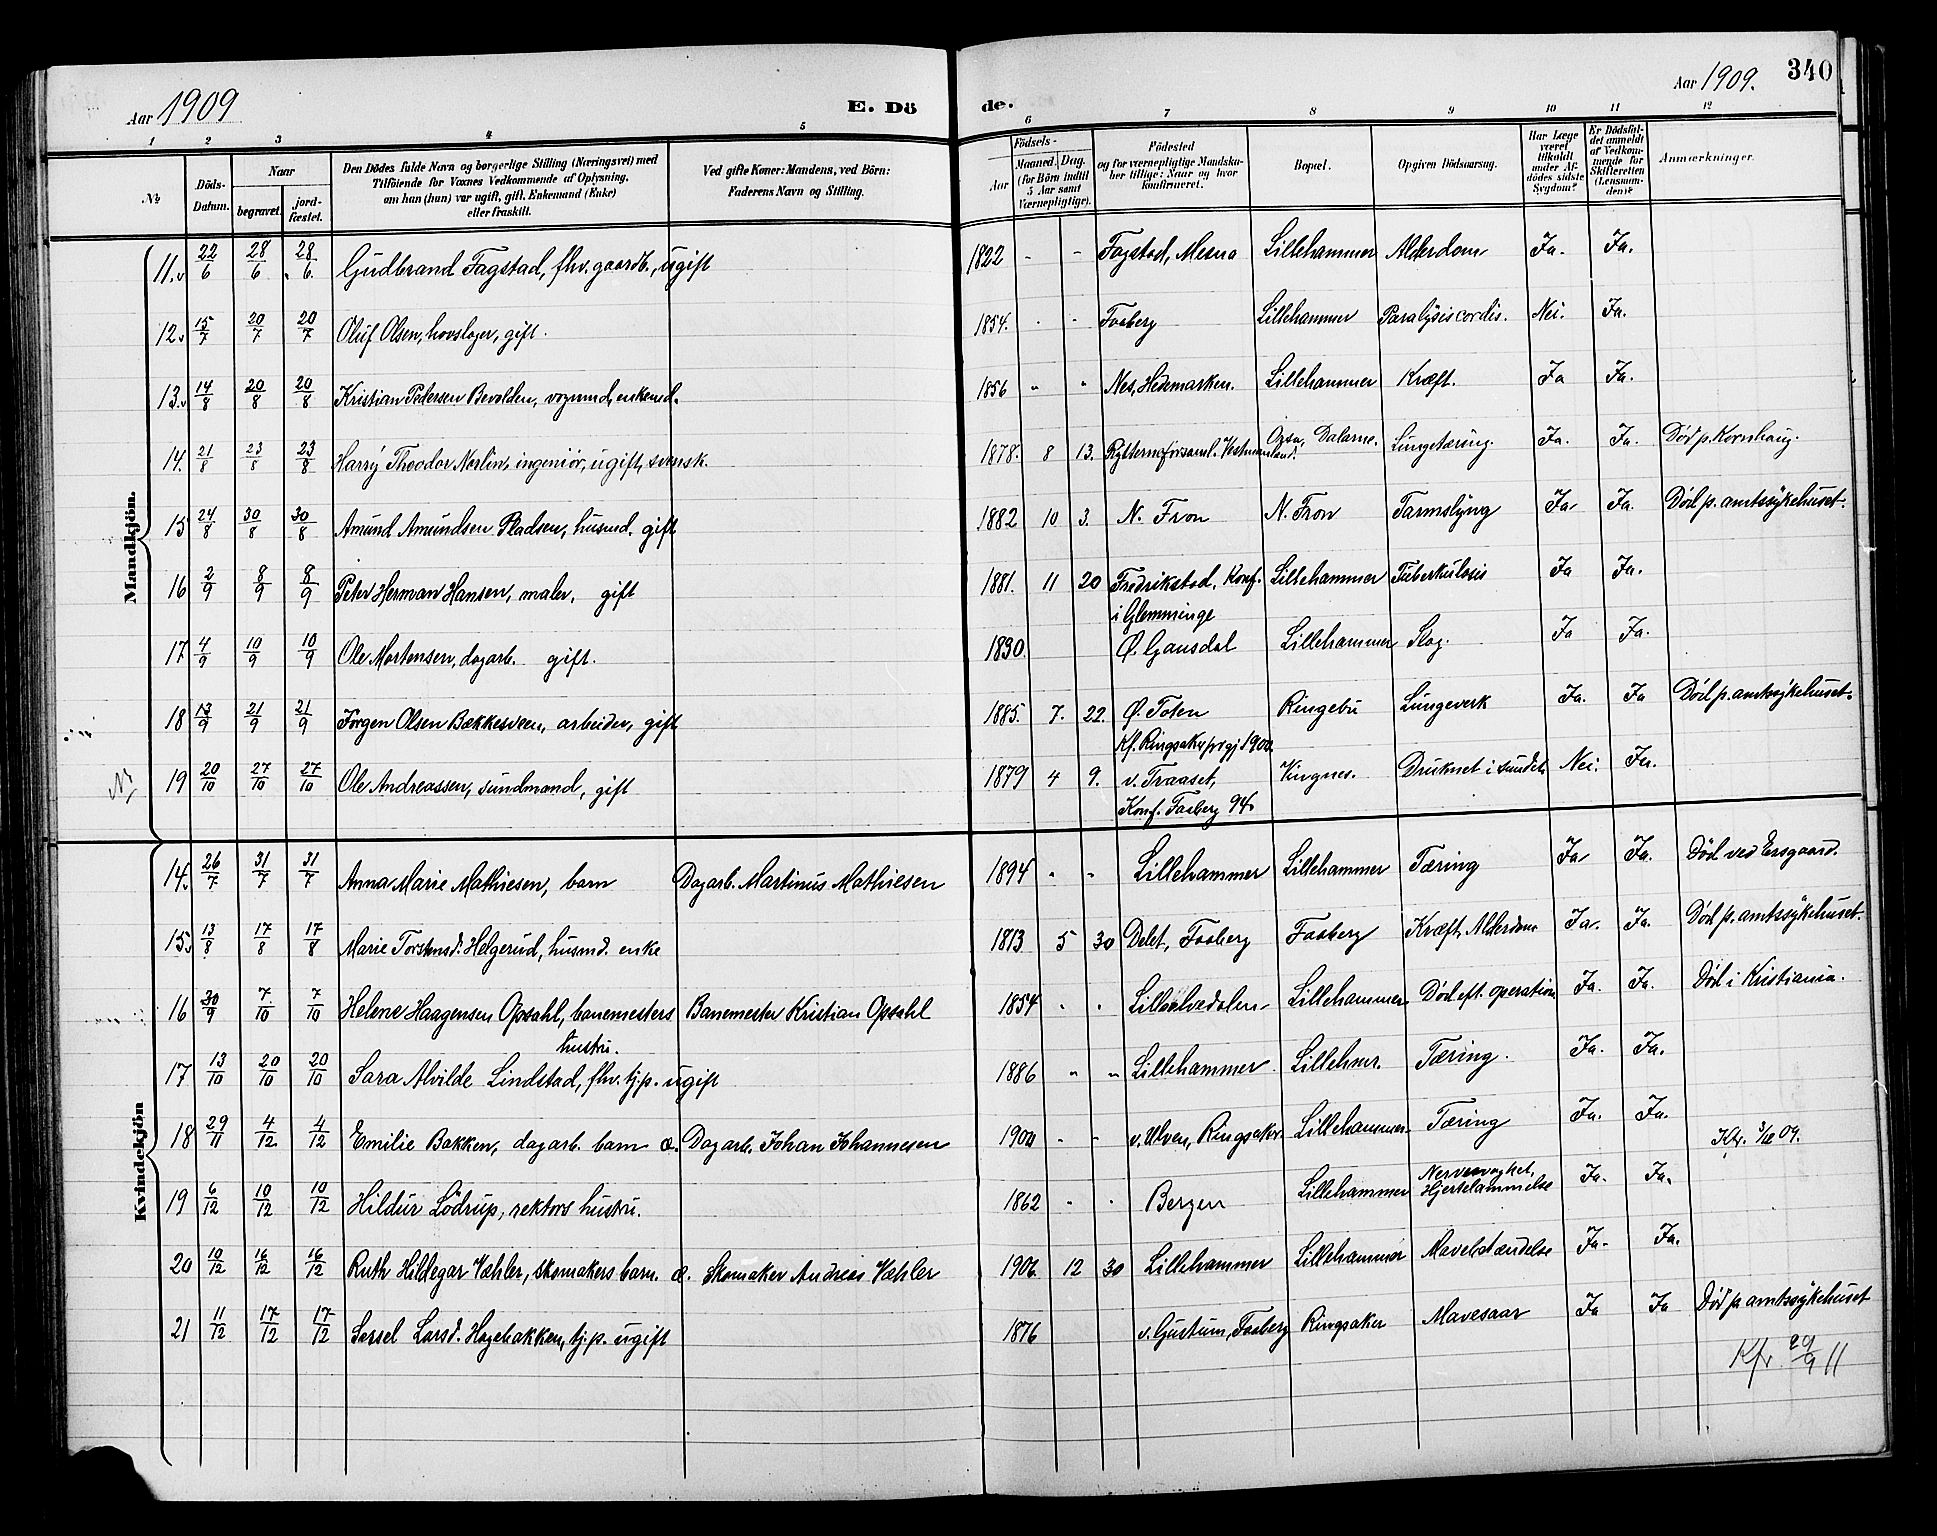 Aar 1909
E. Dö
de.
Aar 1909. 340
1 2 3 4 5 6 7 8 9 10 11 12
No
Döds-Datum.
Naar
begravet.
jord-fæstet.
Den Dödes fulde Navn og borgerlige Stilling (Næringsvei) med
Tilföiende for Voxnes Vedkommende af Oplysning,
om han (hun) var ugift, gift, Enkemand (Enke)
eller fraskilt.
Ved gifte Koner: Mandens, ved Börn:
Faderens Navn og Stilling.
Födsels-
Aar
Maaned. Dag.
(for Börn indtil
5 Aar samt
Værnepligtige).
Födested
og for værnepligtige Mandskaber
tillige: Naar og hvor
konfirmeret.
Bopæl.
Opgiven Dödsaarsag.
Har Læge
været
tilkaldt
under Afdödes
sidste
Sygdom?
Er Dödsfaldet
anmeldt
af Vedkommende
for
Skifteretten
(Lensmanden)?
Anmærkninger.
Mandkjön.
11. 22/6 28/6 28/6. Gudbrand Fagstad, fhv. gaardb., ugift 1822 - - Fagstad, Mesna Lillehammer Alderdom Ja. Ja.
12. 15/7 20/7 20/7 Oluf Olsen, hovslager, gift. 1854. - - Faaberg Lillehammer Paralysis cordis. Nei. Ja.
13. 14/8 20/8 20/8 Kristian Pedersen Bevolden, vognmd, enkemd. 1856 " " Nes, Hedemarken. Lillehammer Kræft. Ja Ja.
14. 21/8 23/8 23/8 Harry Theodor Norlin, ingeniör, ugift, svensk. 1878. 8 13. Rytterneforsaml. Vestmanland. Orsa, Dalarne. Lungetæring. Ja. Ja. Död p. Kornhaug.
15 24/8 30/8 30/8 Amund Amundsen Pladsen, husmd. gift 1882 10 3. N. Fron N. Fron Tarmslyng Ja Ja. Död p. amtssykehuset.
16 2/9 8/9 8/9 Peter Herman Hansen, maler, gift 1881. 11 20 Fredrikstad. Konf. i Glemminge Lillehammer Tuberkulosis Ja Ja.
17 4/9 10/9 10/9 Ole Mortensen, dagarb. gift. 1830. Ø. Gausdal Lillehammer Slag. Ja Ja.
18 13/9 21/9 21/9 Jörgen Olsen Bækkesveen, arbeider, gift 1885. 7. 22. Ø. Toten Kf. Ringsaker prgj 1900. Ringebu Lungeverk Ja. Ja Död p. amtssykehuset.
19 20/10 27/10 27/10 Ole Andreassen, sundmand, gift 1879 4 9. v. Traaset, Konf. Faaberg 94. Vingnes. Druknet i sundet. Nei. Ja.
Kvindekjön
14. 26/7 31/7 31/7 Anna Marie Mathiesen, barn Dagarb. Martinus Mathiesen 1894 " " Lillehammer Lillehammer Tæring Ja Ja. Död ved Ersgaard.
15. 13/8 17/8 17/8 Marie Torstensd. Helgerud, husmd. enke 1813 5 30 Delet, Faaberg Faaberg Kræft, Alderdom Ja. Ja. Död p. amtssykehuset.
16 30/9 7/10 7/10 Helene Haagensen Opsahl, banemesters hustru. Banemester Kristian Opsahl 1854 " " Lilleelvedalen Lillehammer. Död eft. operation Ja. Ja. Död i Kristiania.
17 13/10 20/10 20/10 Sara Alvilde Lindstad, fhv. tj.p. ugift 1886 " " Lillehammer. Lillehmr. Tæring. Ja. Ja.
18 29/11 4/12 4/12 Emilie Bakken, dagarb. barn æ. Dagarb. Johan Johannesen 1900 - - v. Ulven, Ringsaker. Lillehammer. Tæring Ja. Ja. Kfr. 3/12 09.
19 6/12 10/12 10/12 Hildur Lödrup, rektors hustru. 1862 " " Bergen Lillehammer Nervesvaghet, Hjertelammelse Ja. Ja.
20 10/12 16/12 16/12 Ruth Hildegar Væhler, skomakers barn. æ. Skomaker Andreas Væhler 1906. 12 30 Lillehammer Lillehammer Mavebetændelse Ja. Ja.
21 11/12 17/12 17/12 Sersel Larsd. Hagebakken, tj.p. ugift 1876 v. Gustum, Faaberg Ringsaker Mavesaar Ja Ja Död p. amtssykehuset
Kfr. 29/9 11